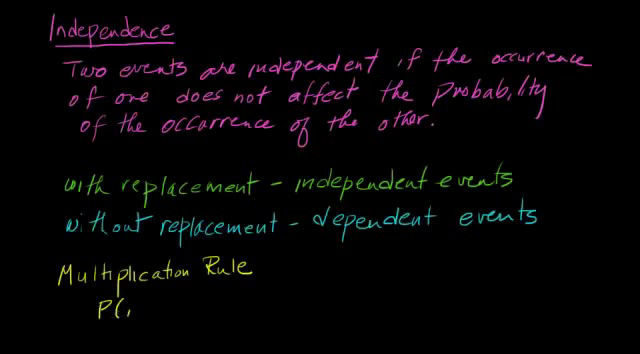 Independence
Two events are independent if the occurrence
of one does not affect the probability
of the occurrence of the other.
with replacement - independent events
without replacement - dependent events
Multiplication Rule
P(